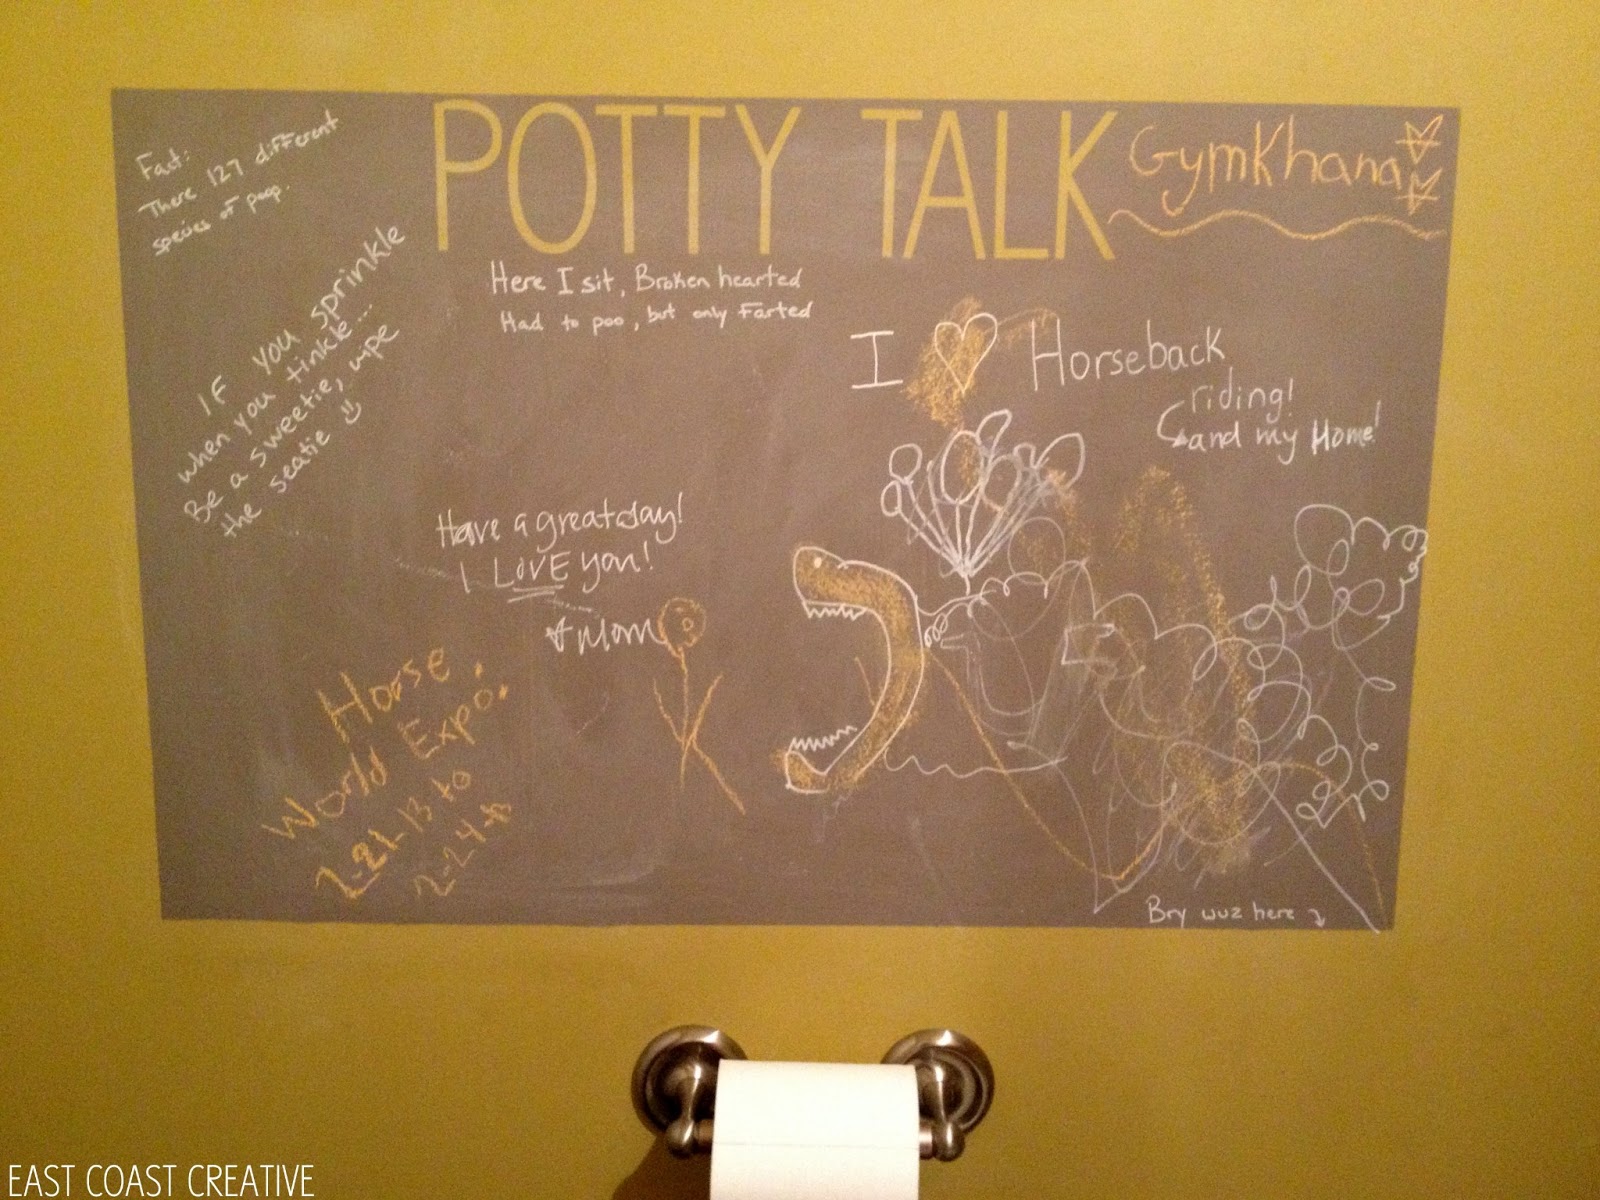 POTTY TALK
Gymkhana
Fact:
There 127 different
species of poop.
IF you sprinkle
when you tinkle...
Be a sweetie, wipe
the seatie
Here I sit, Broken hearted
Had to poo, but only Farted
I ♥ Horseback
riding!
and my Home!
Have a great day!
I LOVE you!
Mom
Horse
World Expo:
1-21-13 to
1-24
Bry wuz here
EAST COAST CREATIVE